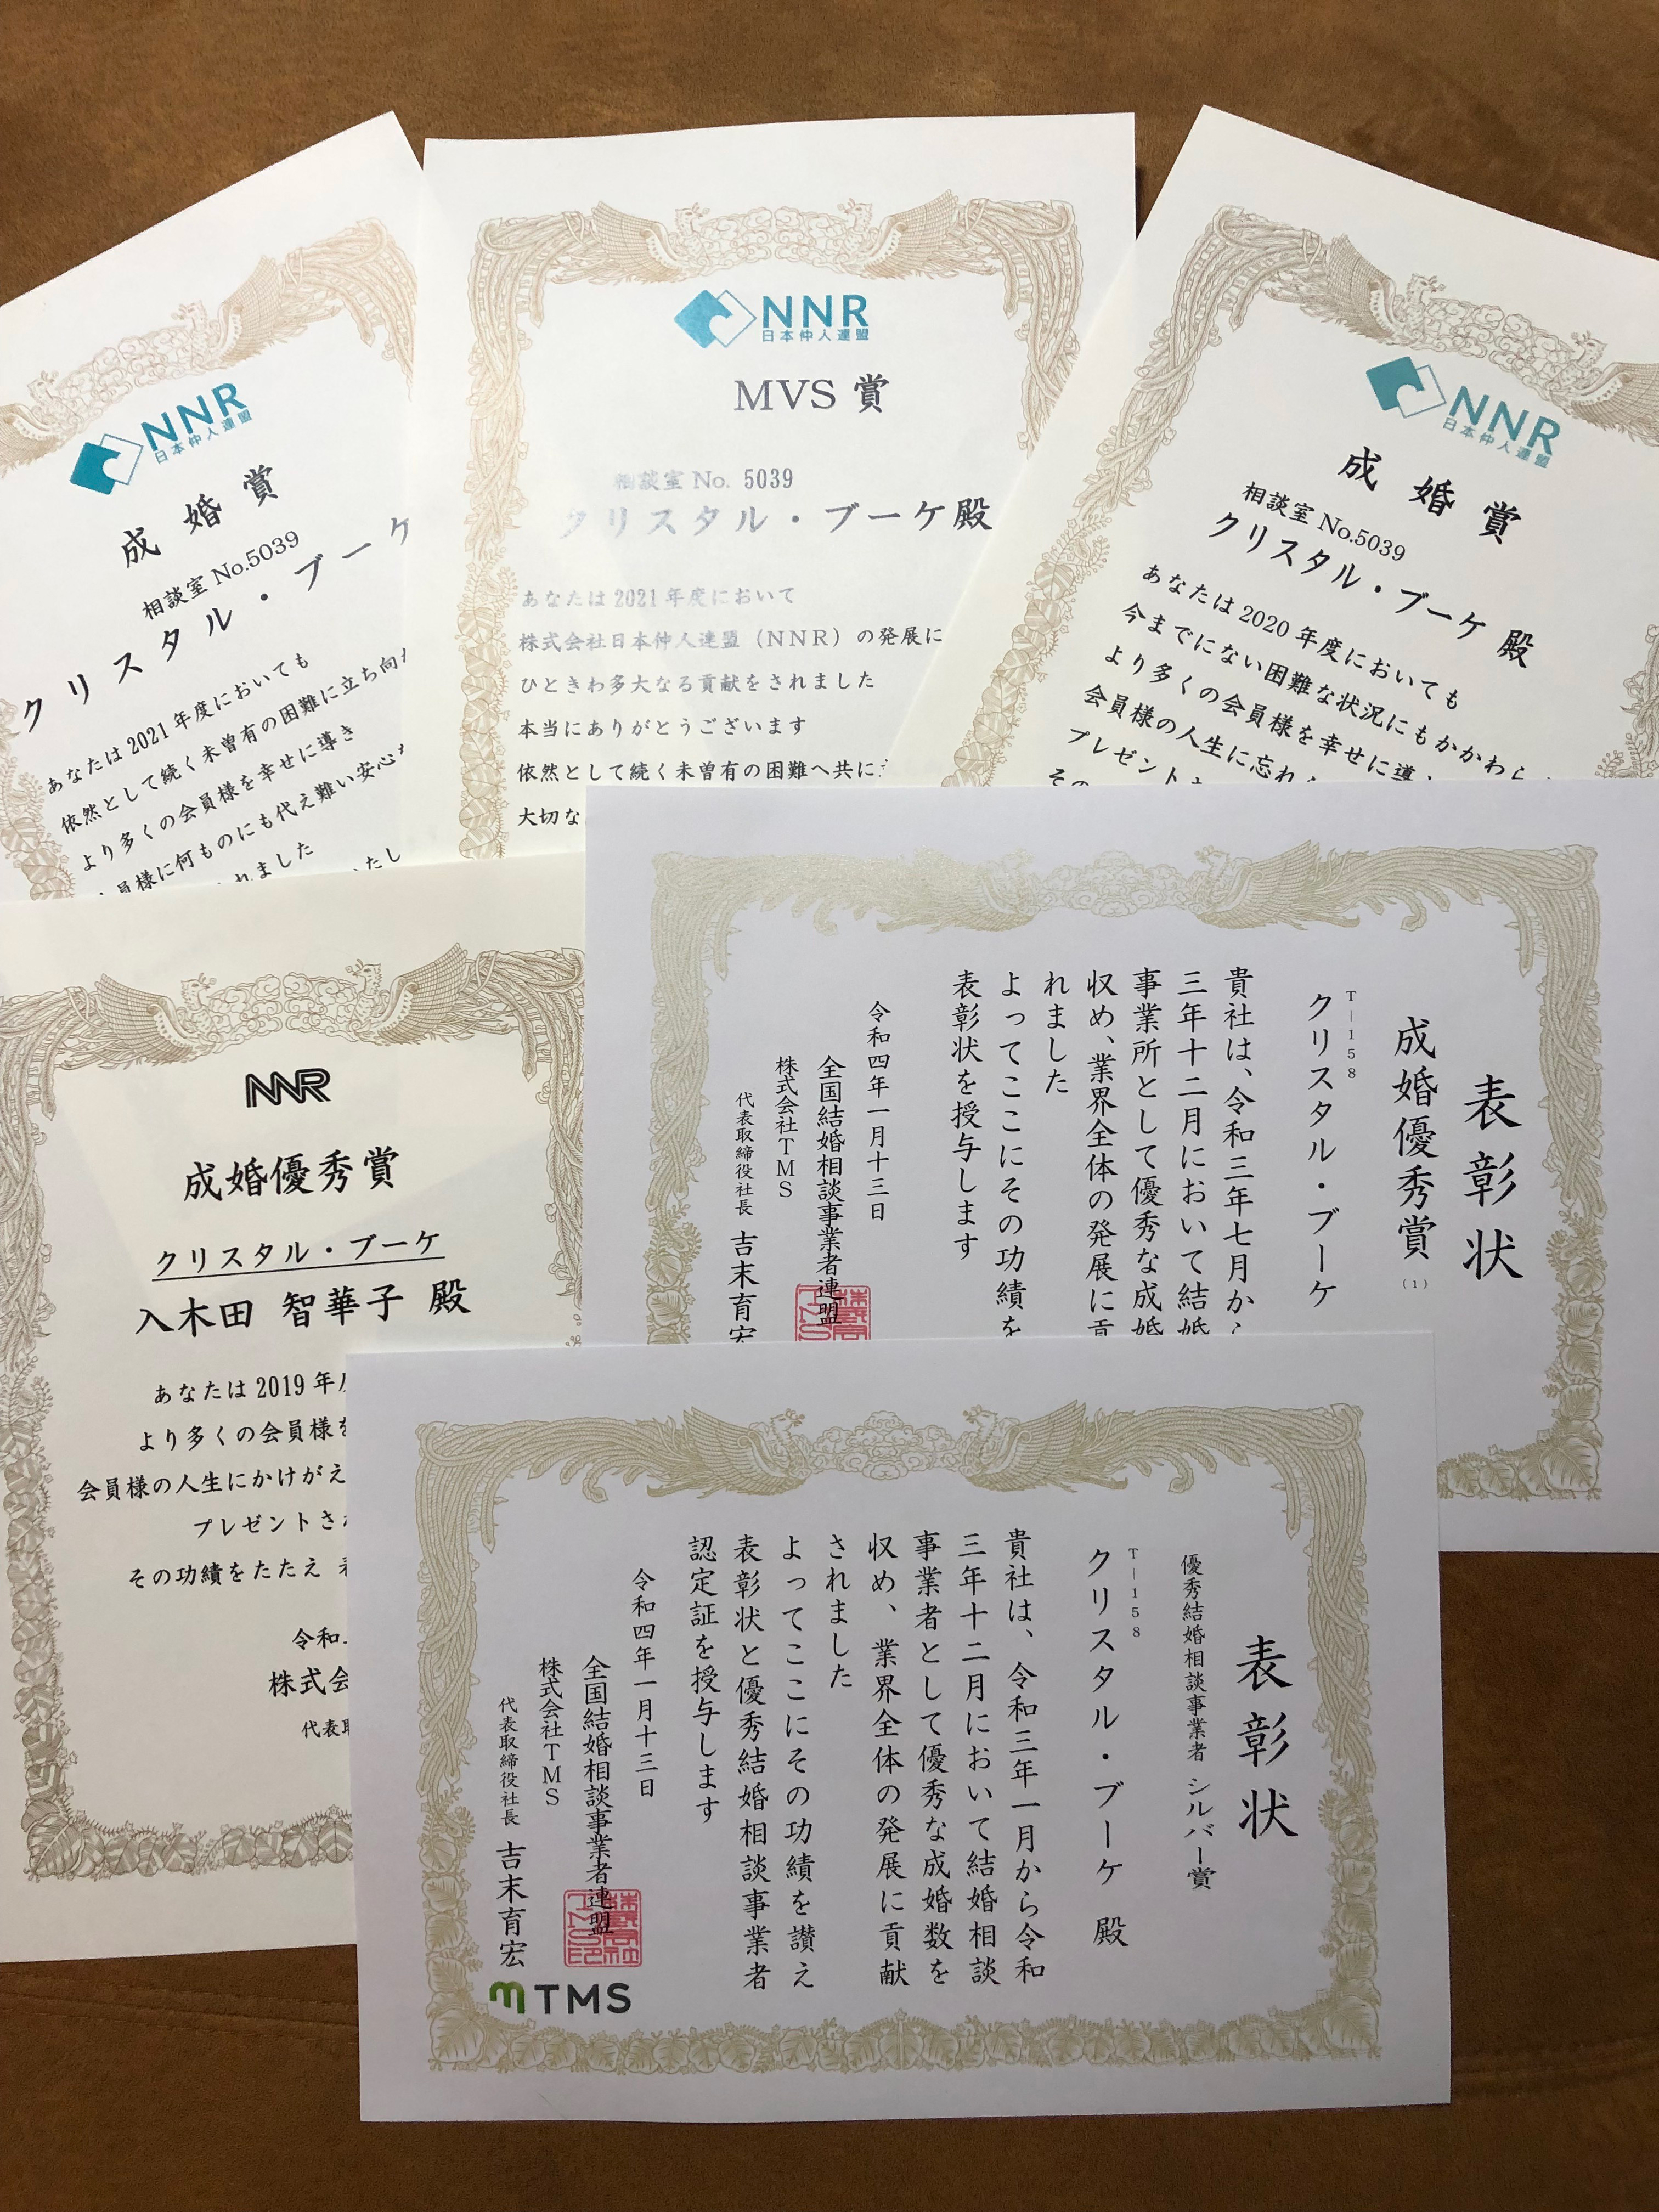 NNR
日本仲人連盟
成婚賞
相談室 No.5039
クリスタル・ブーケ
あなたは 2021 年度においても
依然として続く未曾有の困難に立ち向
より多くの会員様を幸せに導き
員様に何ものにも代え難い安心
れました
たし
NNR
日本仲人連盟
MVS 賞
相談室 No. 5039
クリスタル・ブーケ殿
あなたは 2021 年度において
株式会社日本仲人連盟（NNR）の発展に
ひときわ多大なる貢献をされました
本当にありがとうございます
依然として続く未曾有の困難へ共に
大切な
NNR
日本仲人連盟
成婚賞
相談室 No.5039
クリスタル・ブーケ 殿
あなたは 2020 年度においても
今までにない困難な状況にもかかわら
より多くの会員様を幸せに導
会員様の人生に忘れ
プレゼント
その
NNR
成婚優秀賞
クリスタル・ブーケ
入木田 智華子 殿
あなたは 2019 年
より多くの会員様を
会員様の人生にかけがえ
プレゼントさ
その功績をたたえ
令和
株式会
代表取
表彰状
成婚優秀賞(1)
T―158
クリスタル・ブーケ
貴社は、令和三年七月か
三年十二月において結婚
事業所として優秀な成婚
収め、業界全体の発展に貢
れました
よってここにその功績を
表彰状を授与します
令和四年一月十三日
全国結婚相談事業者連盟
株式会社TMS
代表取締役社長 吉末育宏
表彰状
優秀結婚相談事業者 シルバー賞
T―158
クリスタル・ブーケ 殿
貴社は、令和三年一月から令和
三年十二月において結婚相談
事業者として優秀な成婚数を
収め、業界全体の発展に貢献
されました
よってここにその功績を讃え
表彰状と優秀結婚相談事業者
認定証を授与します
令和四年一月十三日
全国結婚相談事業者連盟
株式会社TMS
代表取締役社長 吉末育宏
TMS